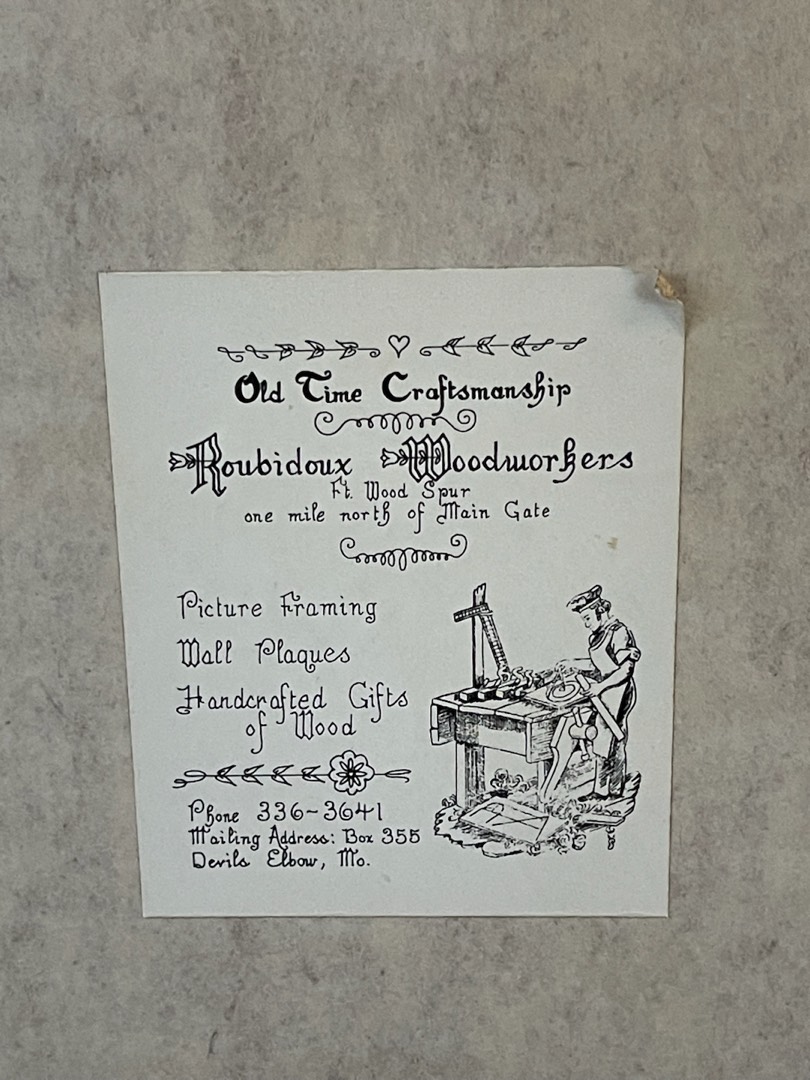 Old Time Craftsmanship
Roubidoux Woodworkers
Ft. Wood Spur
one mile north of Main Gate
Picture Framing
Wall Plaques
Handcrafted Gifts
of Wood
Phone 336-3641
Mailing Address: Box 355
Devils Elbow, Mo.